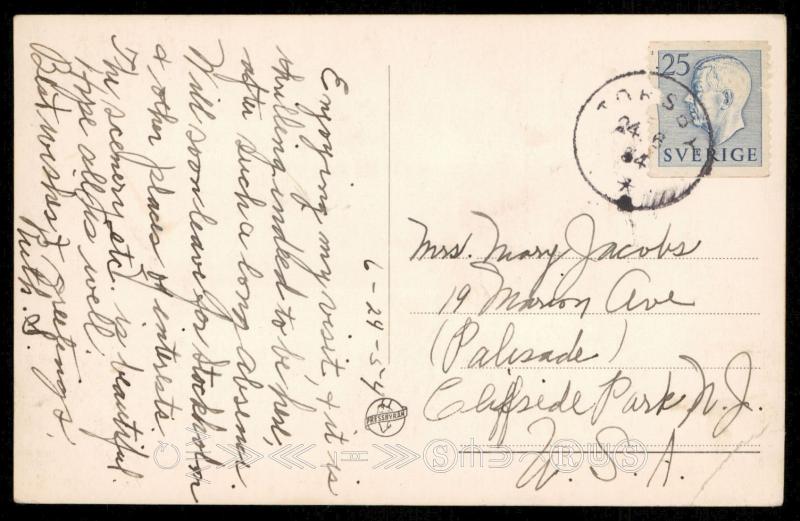 6-24-54
Enjoying my visit, & it is
thrilling indeed to be here,
after such a long absence.
Will soon leave for Stockholm
& other places of interests.
The scenery etc. is beautiful.
Hope all is well.
Best wishes & Greetings,
Ruth. S.
PRESSBYRÅN
25
SVERIGE
TORSBY
24 6
54
Mrs. Mary Jacobs
19 Marion Ave
(Palisade)
Cliffside Park N.J.
U.S.A.